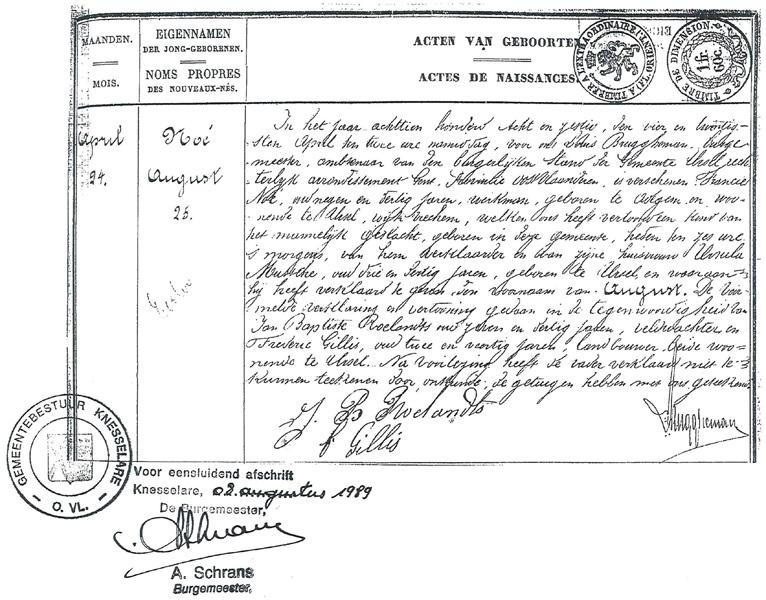 MAANDEN.
MOIS.
EIGENNAMEN
DER JONG-GEBORENEN.
NOMS PROPRES
DES NOUVEAUX-NÉS.
ACTEN VAN GEBOORTEN
ACTES DE NAISSANCES.
TIMBRE DE DIMENSION.
1 fr. 60c.
April
24.
Noé
August
25.
In het jaar achttien honderd Acht en zestig, den vier en twintig-
sten April ten twee ure namiddag, voor ons Louis Bruggheman, burge
meester, ambtenaar van den burgerlijken Stand der Gemeente Ursel, rech
terlijk arrondissement Gent, Provincie Oost Vlaanderen, is verschenen Francis
Noé, oud negen en dertig jaren, werkman, geboren te en woo-
nende te Ursel, wijk, welken ons heeft vertoond een kind van
het mannelijk geslacht, geboren in deze gemeente, heden ten zes ure
's morgens, van hem verklaarder en van zijne huisvrouw Ursula
oud drie en dertig jaren, geboren te Ursel, en waaraan
hij heeft verklaard te geven den voornaam van August. De
melde verklaring en vertooning gedaan in de tegenwoordigheid van
Jan Baptiste Roelandts oud zeven en dertig jaren, veldwachter en
Frederic Gillis, oud twee en veertig jaren, landbouwer, beide woo-
nende te Ursel. Na voorlezing heeft de vader verklaard niet te
kunnen teekenen door onkunde, de getuigen hebben met ons geteekend
J B Roelandts
f Gillis
Bruggheman
GEMEENTEBESTUUR KNESSELARE
O. VL.
Voor eensluidend afschrift
Knesselare, 02 augustus 1989
De Burgemeester,
A. Schrans
Burgemeester,